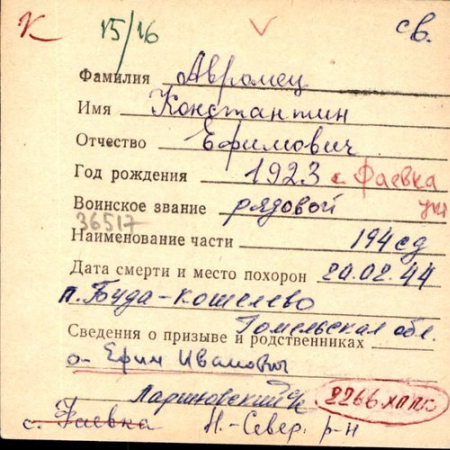 К 15/16 св.
Фамилия Авромец
Имя Константин
Отчество Ефимович
Год рождения 1923 с. Фаевка
Воинское звание рядовой
36517
Наименование части 194 сд
Дата смерти и место похорон 20.02.44
п. Буда-Кошелево
Гомельская обл.
Сведения о призыве и родственниках
о- Ефим Иванович
2266
с. Фаевка Н.-Север. р-н